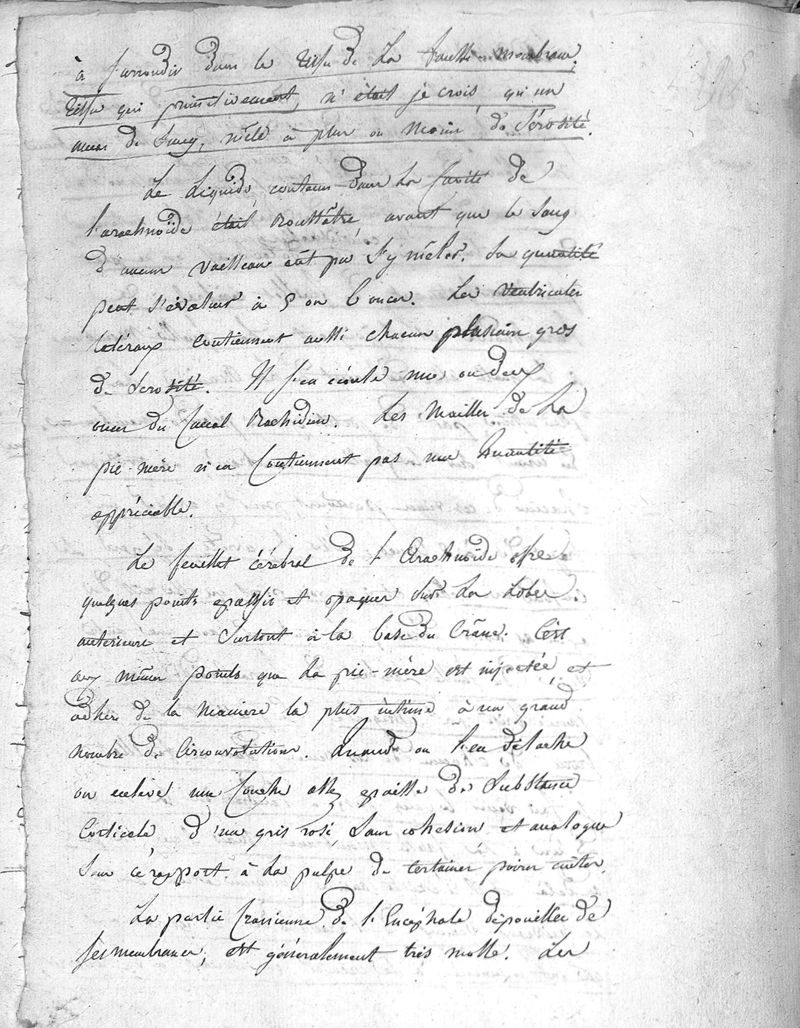 à s'arrondir dans le tissu de la fausse membrane.
tissu qui primitivement, n'était je crois, qu'un
amas de sang, mêlé à plus ou moins de sérosité.
Le liquide, contenu dans la cavité de
l'arachnoïde était roussâtre, avant que le sang
d'aucun vaisseau eût pu s'y mêler. Sa quantité
peut s'évaluer à 5 ou 6 onces. Les ventricules
latéraux contiennent aussi chacun plusieurs gros
de sérosité. Il s'en écoule une ou deux
onces du canal rachidien. Les mailles de la
pie-mère n'en contiennent pas une quantité
appréciable.
Le feuillet cérébral de l'arachnoïde offre
quelques points épaissis et opaques sur les lobes
antérieurs et surtout à la base du crâne. C'est
aux mêmes points que la pie-mère est injectée, et
adhère de la manière la plus intime à un grand
nombre de circonvolutions. Quand on l'en détache
on enlève une couche assez épaisse de substance
corticale, d'un gris rosé, sans cohésion et analogue
sous ce rapport, à la pulpe de certaines poires cuites.
La partie crânienne de l'encéphale dépouillée de
ses membranes, est généralement très molle. Les